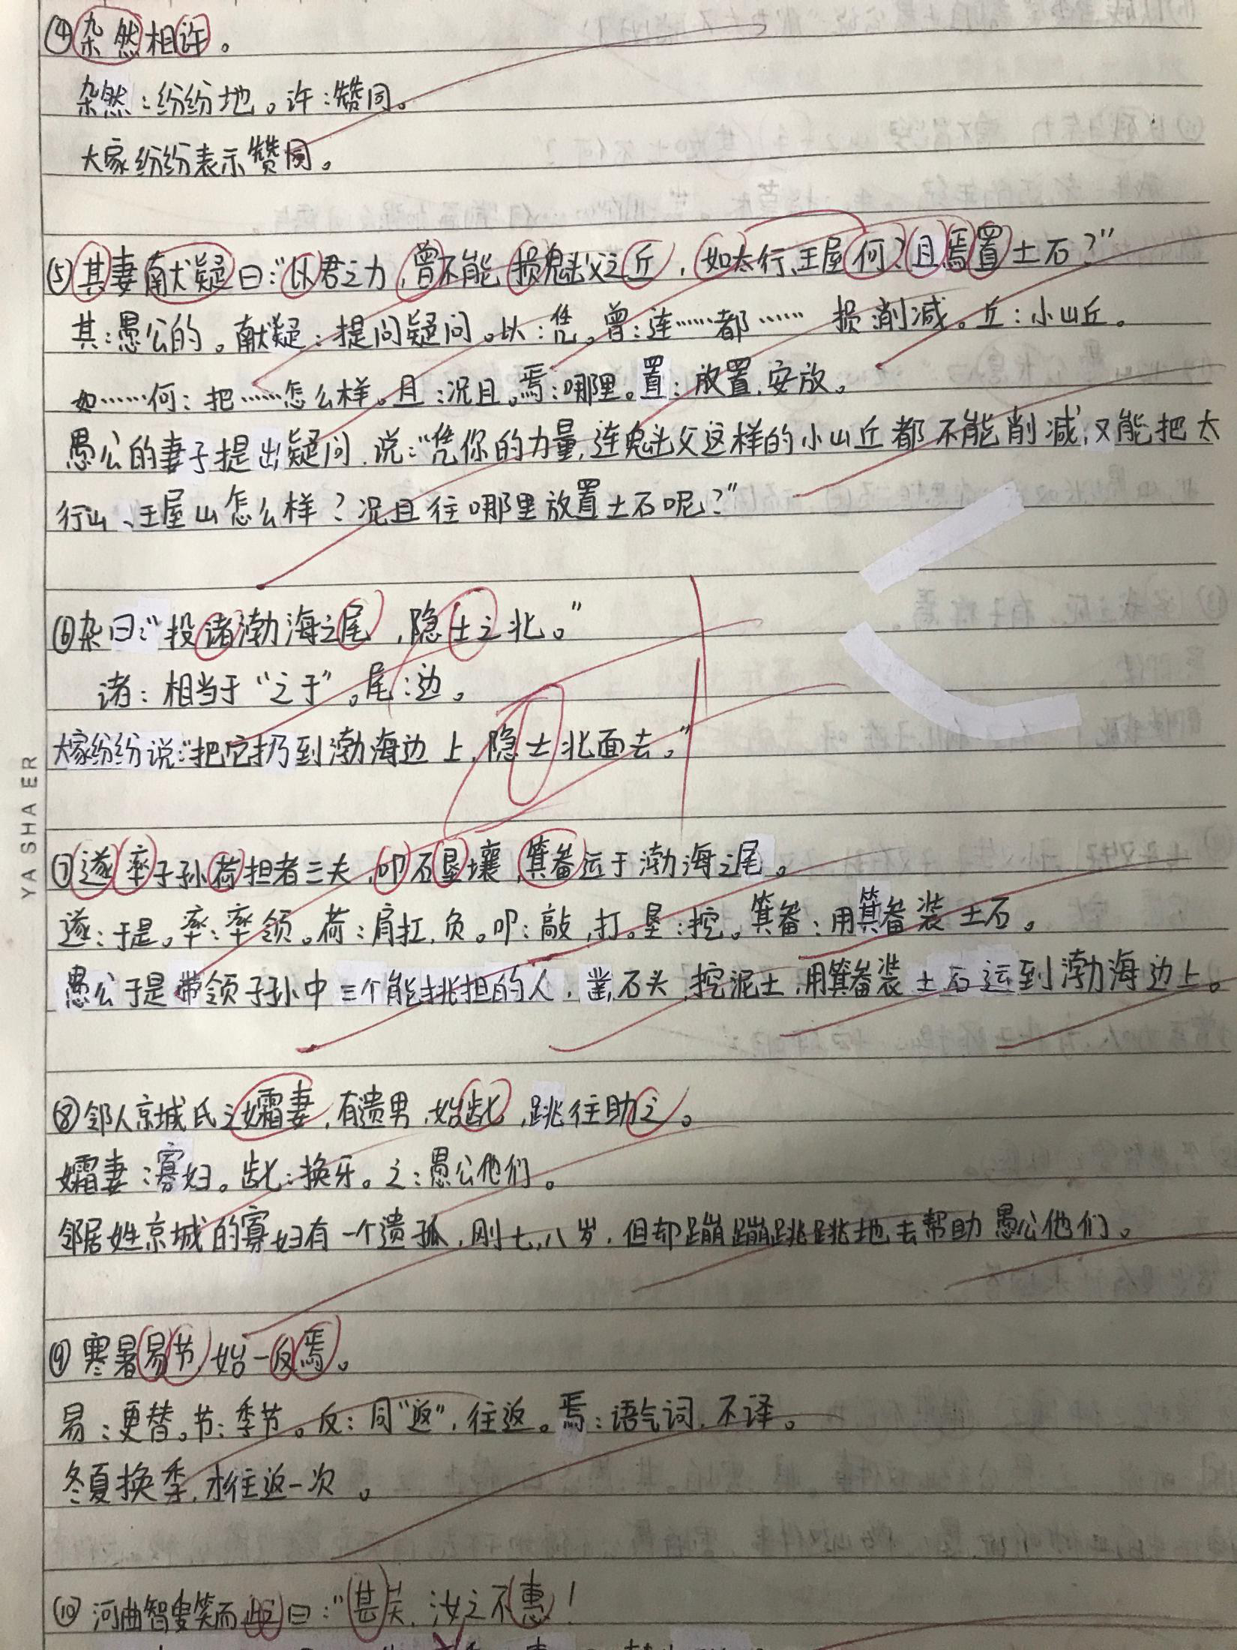 ④杂然相许。
杂然:纷纷地。许:赞同。
大家纷纷表示赞同。
⑤其妻献疑曰:“以君之力,曾不能损魁父之丘,如太行、王屋何?且焉置土石?”
其:愚公的。献疑:提问疑问。以:凭。曾:连……都…… 损:削减。丘:小山丘。
如……何:把……怎么样。且:况且。焉:哪里。置:放置、安放。
愚公的妻子提出疑问,说:“凭你的力量,连魁父这样的小山丘都不能削减,又能把太
行山、王屋山怎么样?况且往哪里放置土石呢?”
⑥杂曰:“投诸渤海之尾,隐土之北。”
诸:相当于“之于”。尾:边。
大家纷纷说:“把它扔到渤海边上,隐土北面去。”
⑦遂率子孙荷担者三夫,叩石垦壤,箕畚运于渤海之尾。
遂:于是。率:率领。荷:肩扛,负。叩:敲,打。垦:挖。箕畚:用箕畚装土石。
愚公于是带领子孙中三个能挑担的人,凿石头,挖泥土,用箕畚装土石运到渤海边上。
⑧邻人京城氏之孀妻,有遗男,始龀,跳往助之。
孀妻:寡妇。龀:换牙。之:愚公他们。
邻居姓京城的寡妇有一个遗孤,刚七、八岁,但却蹦蹦跳跳地去帮助愚公他们。
⑨寒暑易节,始一反焉。
易:更替。节:季节。反:同“返”,往返。焉:语气词,不译。
冬夏换季,才往返一次。
⑩河曲智叟笑而止之曰:“甚矣,汝之不惠!
YASHAER